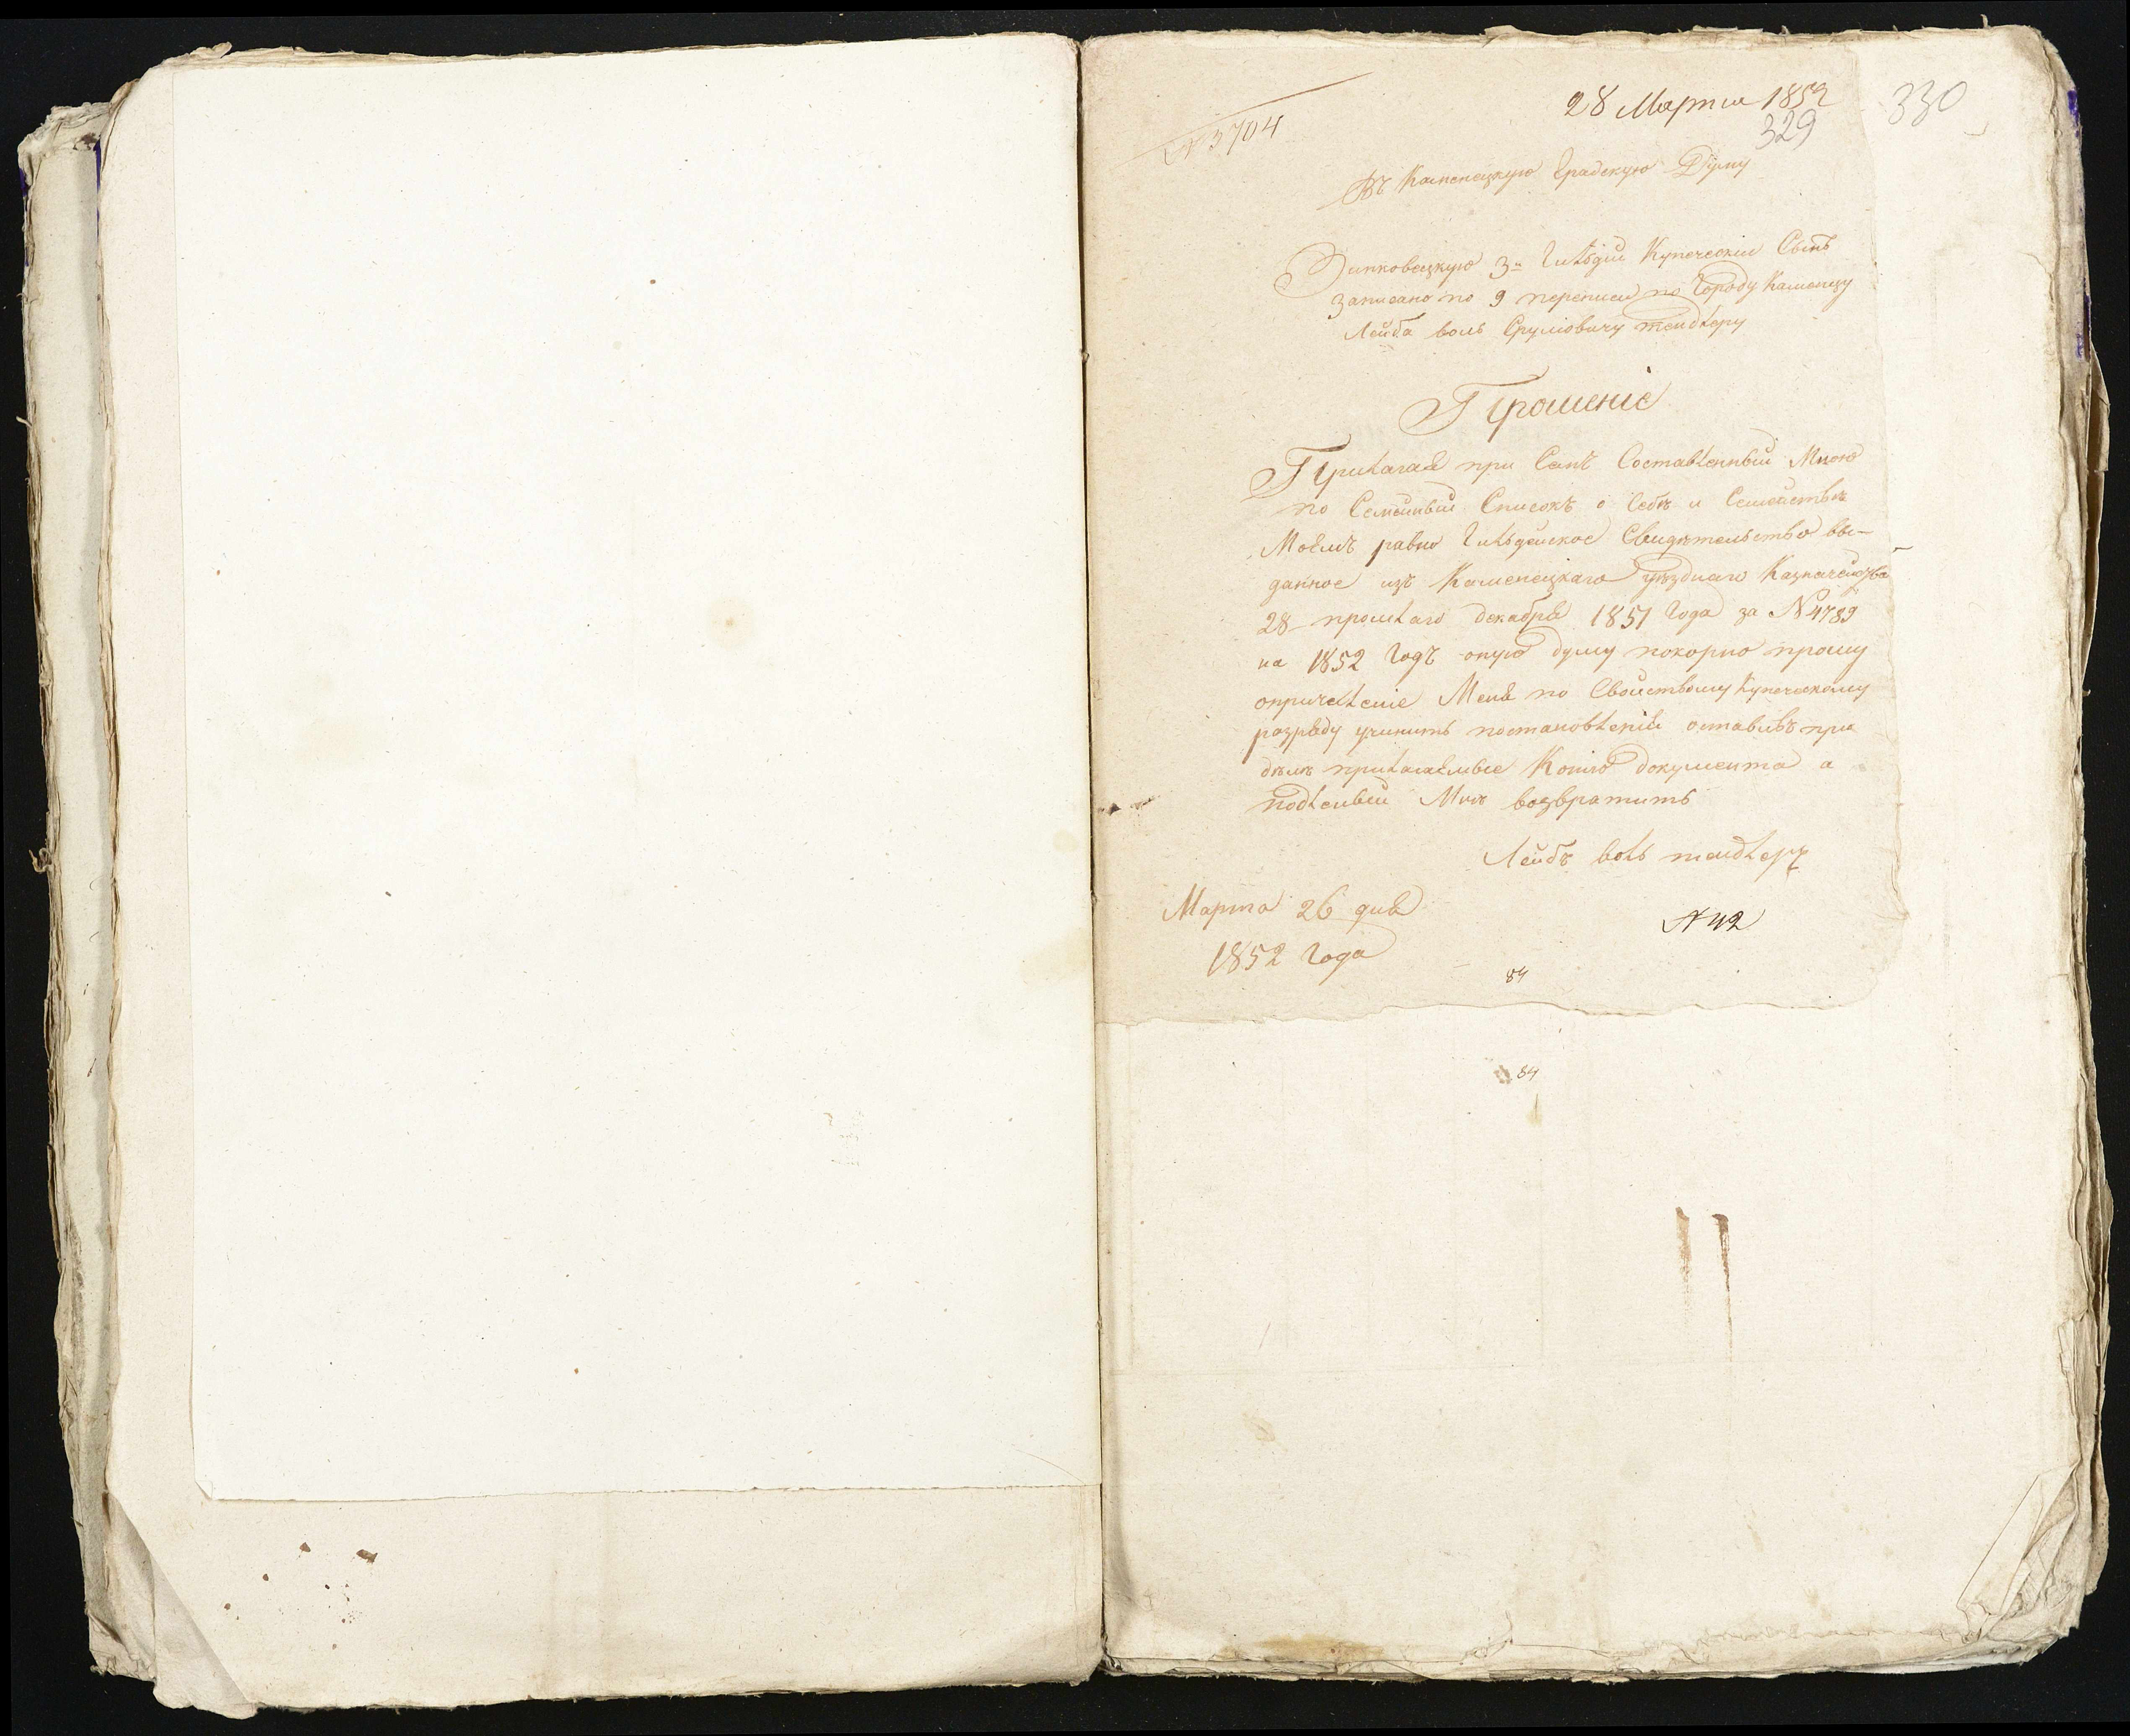 28 Марта 1852
№ 3704
329
330
Въ Каменецкую Градскую Думу
Зинковецкую 3й Гильдіи Купеческіи Сынъ
Записано по 9 переписи по Городу Каменцу
Лейба воль Сруліовичу тендлеру
Прошеніе
Прилагая при Семъ Составленный Мною
по Семейный Списокъ о Себѣ и Семействѣ
Моемъ равно Гильдейское Свидѣтельство вы-
данное изъ Каменецкаго уѣзднаго Казначейства
28 прошлаго декабря 1851 Года за № 4789
на 1852 Годъ оную думу покорно прошу
опричеленіе Меня по Свойствому Купеческому
разряду учинить постановленія оставивъ при
дѣлѣ прилагаемые Копію документа а
подленый Мнѣ возвратить
Лейбъ воль тендлеръ
Марта 26 дня
№ 42
1852 Года
84
84